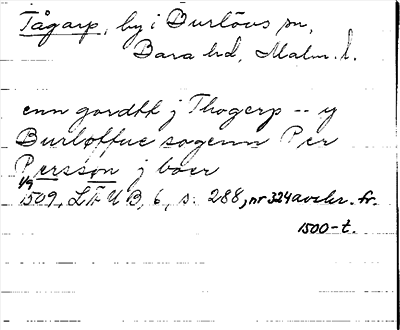 Tågarp, by i Burlövs sn,
Bara hd, Malm. l.
enn gordtk j Thogerp -- y
Burløffue sogenn Per
Persson j boer
1/9
1509, LÄUB, 6, s. 288, nr 324 avskr. fr.
1500-t.